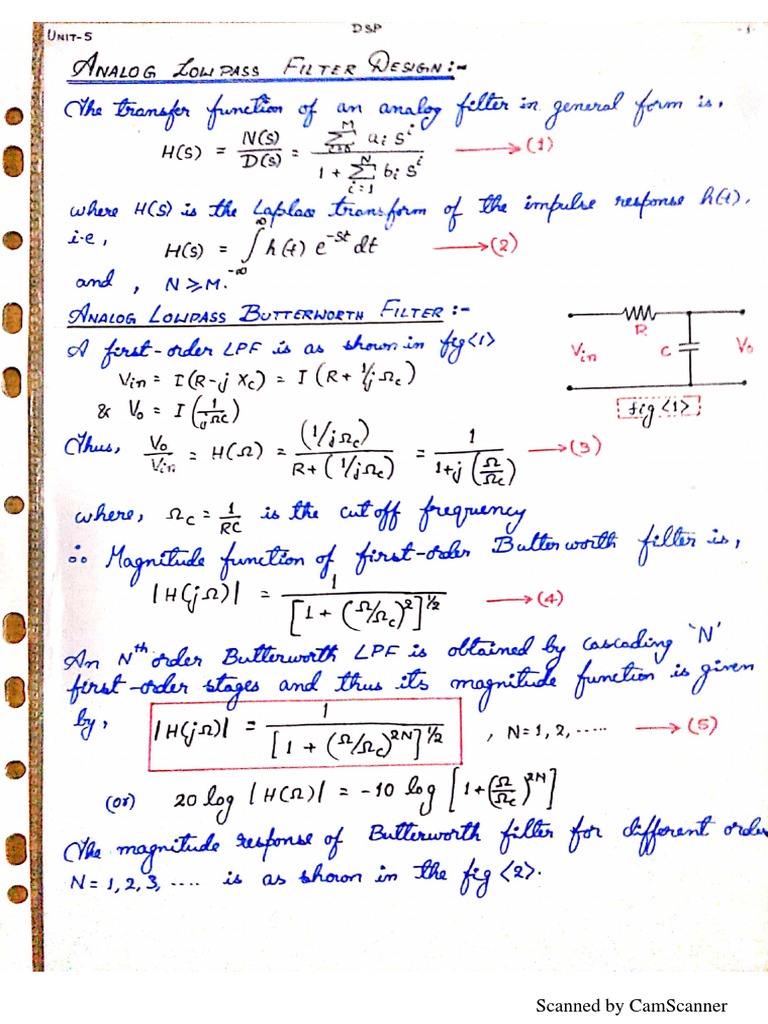 DSP
- 1 -
UNIT-5
ANALOG LOWPASS FILTER DESIGN :-
The transfer function of an analog filter in general form is,
H(s) = N(s)/D(s) = ∑_{i=0}^{M} a_i s^i / (1 + ∑_{i=1}^{N} b_i s^i) ⟶ (1)
where H(s) is the Laplace transform of the impulse response h(t),
i.e, H(s) = ∫_{-∞}^{∞} h(t) e^{-st} dt ⟶ (2)
and , N ⩾ M.
ANALOG LOWPASS BUTTERWORTH FILTER :-
A first-order LPF is as shown in fig<1>
Vin = I(R-j Xc) = I(R + 1/jΩc)
& Vo = I(1/jΩc)
R
Vin
C
Vo
fig <1>
Thus, Vo/Vin = H(Ω) = (1/jΩc) / (R+(1/jΩc)) = 1 / (1+j(Ω/Ωc)) ⟶ (3)
where, Ωc = 1/RC is the cutoff frequency
∴ Magnitude function of first-order Butterworth filter is,
|H(jΩ)| = 1 / [1 + (Ω/Ωc)^2]^{1/2} ⟶ (4)
An Nth order Butterworth LPF is obtained by cascading 'N'
first-order stages and thus its magnitude function is given
by, |H(jΩ)| = 1 / [1 + (Ω/Ωc)^{2N}]^{1/2} , N = 1, 2, ..... ⟶ (5)
(or) 20 log |H(Ω)| = -10 log [1+(Ω/Ωc)^{2N}]
The magnitude response of Butterworth filter for different order
N = 1, 2, 3, .... is as shown in the fig <2>.
Scanned by CamScanner